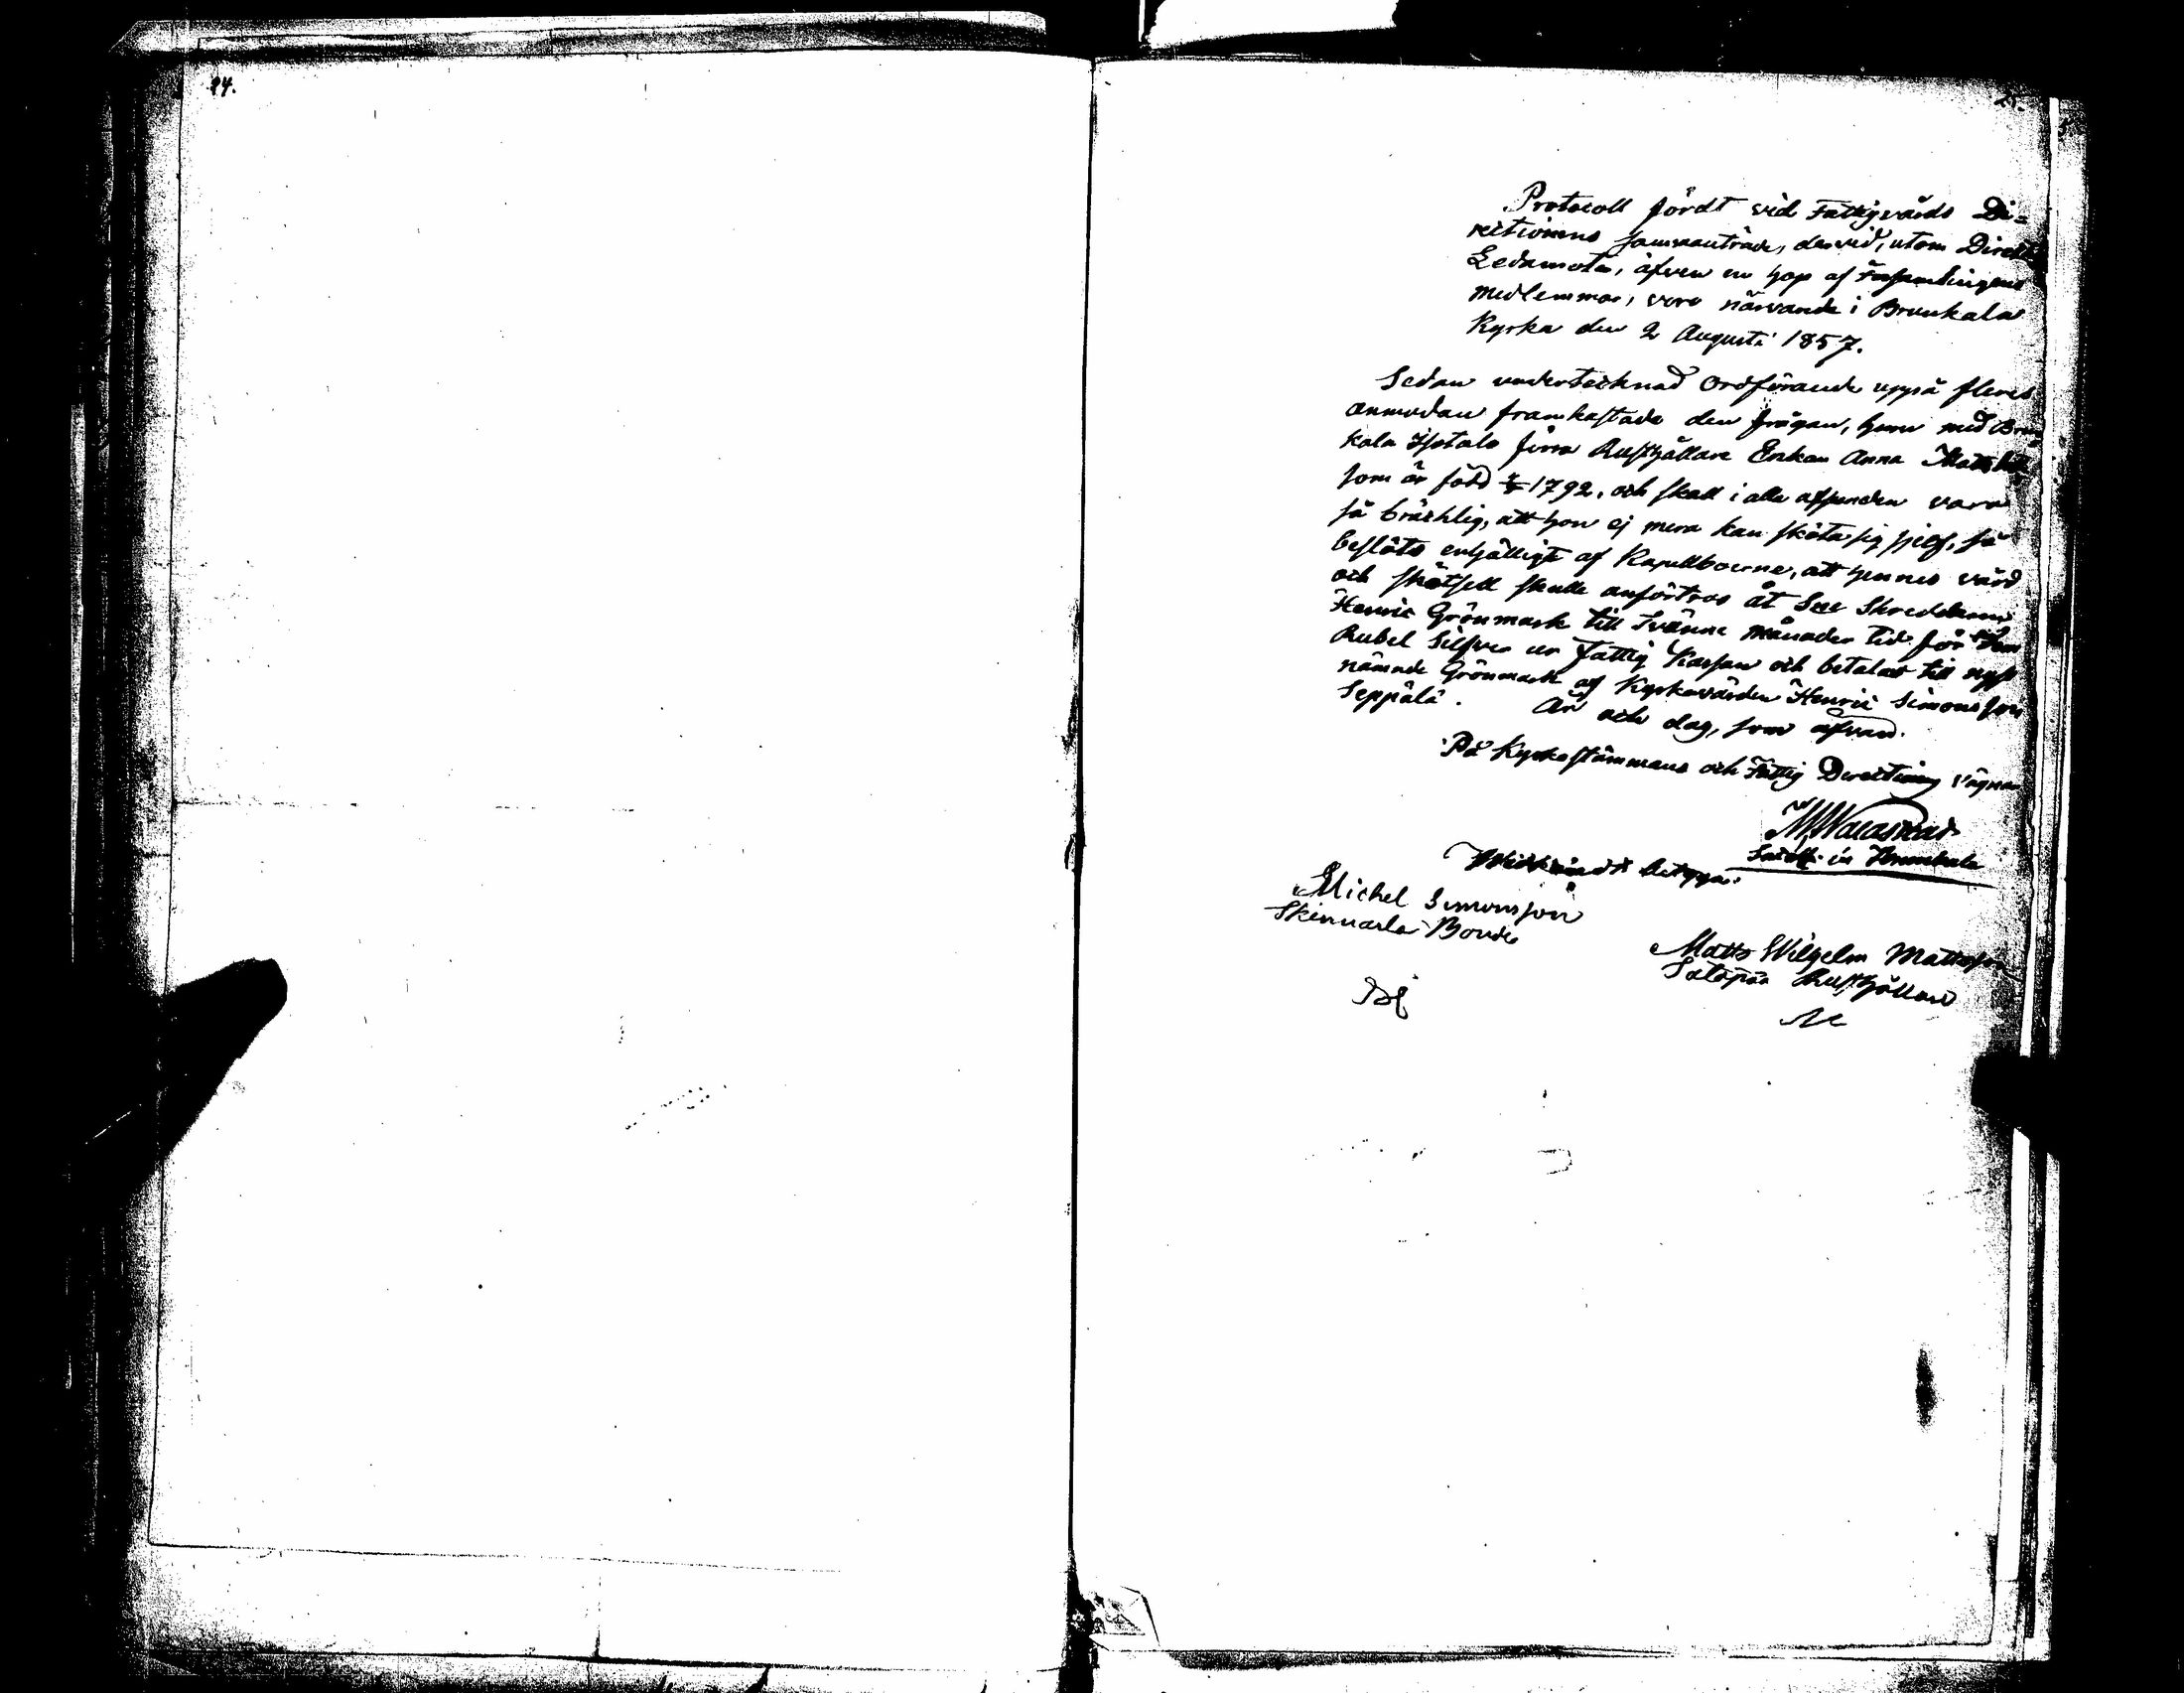 24.
25.
Protocoll fördt vid Fattigvårds Di=
rectionens sammanträde, dervid, utom Direct
Ledamöter, äfven en hop af Församlingens
medlemmar, voro närvarande i Brunkala
Kyrka den 2 Augusti 1857.
Sedan undertecknad Ordförande uppå fleres
anmodan framkastade den frågan, huru med Brun
kala Isotalo förra Rusthållare Enkan Anna Matts
som är född 1792, och skall i alla afseenden vara
så bräcklig, att hon ej mera kan sköta sig sjelf, så
beslöts enhälligt af Kapellboerne, att hennes vård
och skötsel skulle anförtros åt Skreddaren
Henric Grönmark till Tvänne månader tid för
Rubel Silfver ur Fattig Kassan och betalas till nyss
nämnde Grönmark af Kyrkovärden Henric Simonsson
Seppälä. År och dag, som ofvan.
På Kyrkostämmans och Fattig Directions vägnar
in Brunkala
betyga:
Michel Simonsson
Skinnarla Bonde
Matts Wilhelm Mattsson
Satopää Rusthållare